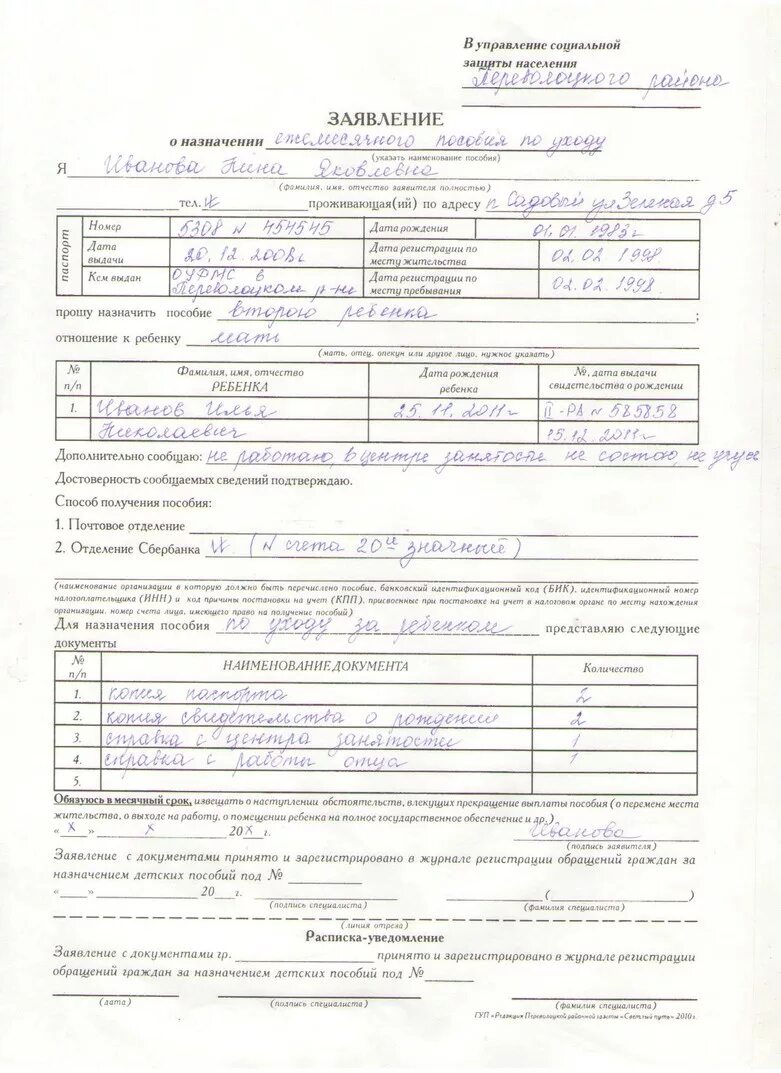 В управление социальной
защиты населения
Переволоцкого района
ЗАЯВЛЕНИЕ
о назначении ежемесячного пособия по уходу
(указать наименование пособия)
Я Иванова Нина Яковлевна
(фамилия, имя, отчество заявителя полностью)
тел. проживающая(ий) по адресу п Садовый ул Зеленая д 5
паспорт
Номер 5308 N 454545 Дата рождения 01.01.1983г
Дата выдачи 20.12.2008г Дата регистрации по месту жительства 02.02.1998
Кем выдан ОУФМС в Переволоцком р-не Дата регистрации по месту пребывания 02.02.1998
прошу назначить пособие второго ребенка ;
отношение к ребенку мать
(мать, отец, опекун или другое лицо, нужное указать)
№ п/п Фамилия, имя, отчество РЕБЕНКА Дата рождения ребенка №, дата выдачи свидетельства о рождении
1. Иванов Илья 25.11.2011г II-РА N 585858
Николаевич 15.12.2011г
Дополнительно сообщаю: не работаю, в центре занятости не состою, не
Достоверность сообщаемых сведений подтверждаю.
Способ получения пособия:
1. Почтовое отделение
2. Отделение Сбербанка (N счета 20и значный)
(наименование организации в которую должно быть перечислено пособие, банковский идентификационный код (БИК), идентификационный номер
налогоплательщика (ИНН) и код причины постановки на учет (КПП), присвоенные при постановке на учет в налоговом органе по месту нахождения
организации, номер счета лица, имеющего право на получение пособия)
Для назначения пособия по уходу за ребенком представляю следующие
документы
№ п/п НАИМЕНОВАНИЕ ДОКУМЕНТА Количество
1. копия паспорта 2
2. копия свидетельства о рождении 2
3. справка с центра занятости 1
4. справка с работы отца 1
5.
Обязуюсь в месячный срок, извещать о наступлении обстоятельств, влекущих прекращение выплаты пособия (о перемене места
жительства, о выходе на работу, о помещении ребенка на полное государственное обеспечение и др.)
« x » x 20 x г. Иванова
(подпись заявителя)
Заявление с документами принято и зарегистрировано в журнале регистрации обращений граждан за
назначением детских пособий под №
« » 20 г. ( )
(подпись специалиста) (фамилия специалиста)
(линия отреза)
Расписка-уведомление
Заявление с документами гр. принято и зарегистрировано в журнале регистрации
обращений граждан за назначением детских пособий под №
(дата) (подпись специалиста) (фамилия специалиста)
ГУП «Редакция Переволоцкой районной газеты «Светлый путь» 2010 г.